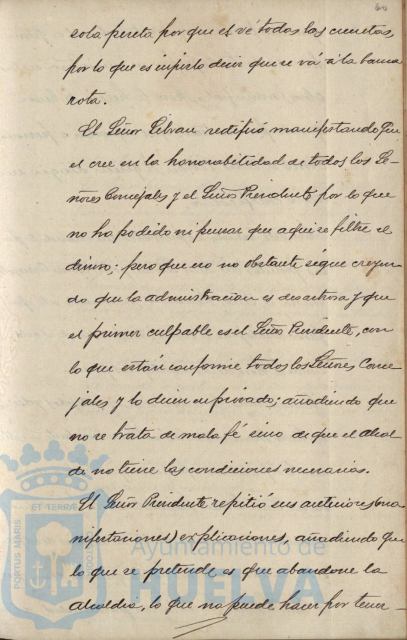 60
sola peseta por que él vé todas las cuentas,
por lo que es injusto decir que se vá á la banca
rota.
El Señor Silvan rectificó manifestando que
el cree en la honorabilidad de todos los Se-
ñores Concejales y el Señor Presidente por lo que
no ha podido ni pensar que aqui se filtre el
dinero; pero que eso no obstante sigue creyen-
do que la administracion es desastrosa y que
el primer culpable es el Señor Presidente, con
lo que están conforme todos los Señores Conce-
jales y lo dicen en privado; añadiendo que
no se trata de mala fé sino de que el alcal
de no tiene las condiciones necesarias.
El Señor Presidente repitió sus anteriores (ma-
nifestaciones) explicaciones, añadiendo que
lo que se pretende es que abandone la
alcaldia, lo que no puede hacer por tener-
PORTUS MARIS ET TERRAE CUSTODIA
Ayuntamiento de
HUELVA